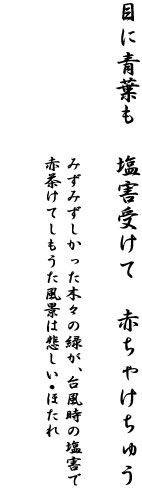 目に青葉も　塩害受けて　赤ちゃけちゅう
みずみずしかった木々の緑が、台風時の塩害で
赤茶けてしもうた風景は悲しい・ほたれ